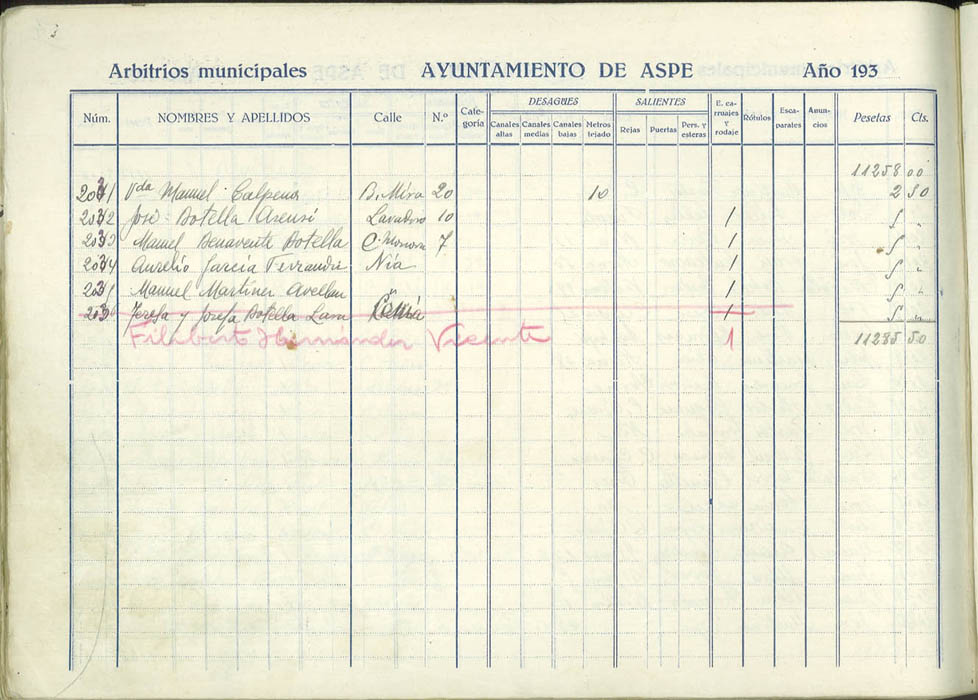 Arbitrios municipales AYUNTAMIENTO DE ASPE Año 193
Núm. NOMBRES Y APELLIDOS Calle N.º Cate-goría DESAGÜES Canales altas Canales medias Canales bajas Metros tejado SALIENTES Rejas Puertas Pers. y esteras E. ca-rruajes y rodaje Rótulos Esca-parates Anun-cios Pesetas Cts.
11258 00
2031 Vda Manuel Calpena B. Mira 20 10 2 50
2032 José Botella Asensi Lavadero 10 1 5 "
2033 Manuel Benavente Botella C. Monovar 7 1 5 "
2034 Aurelio García Ferrandis Nía 1 5 "
Manuel Martinez Avellan " 1 5 "
Teresa y Josefa Botella 1 5 "
Filiberto Hernández Vicente 1 11285 50